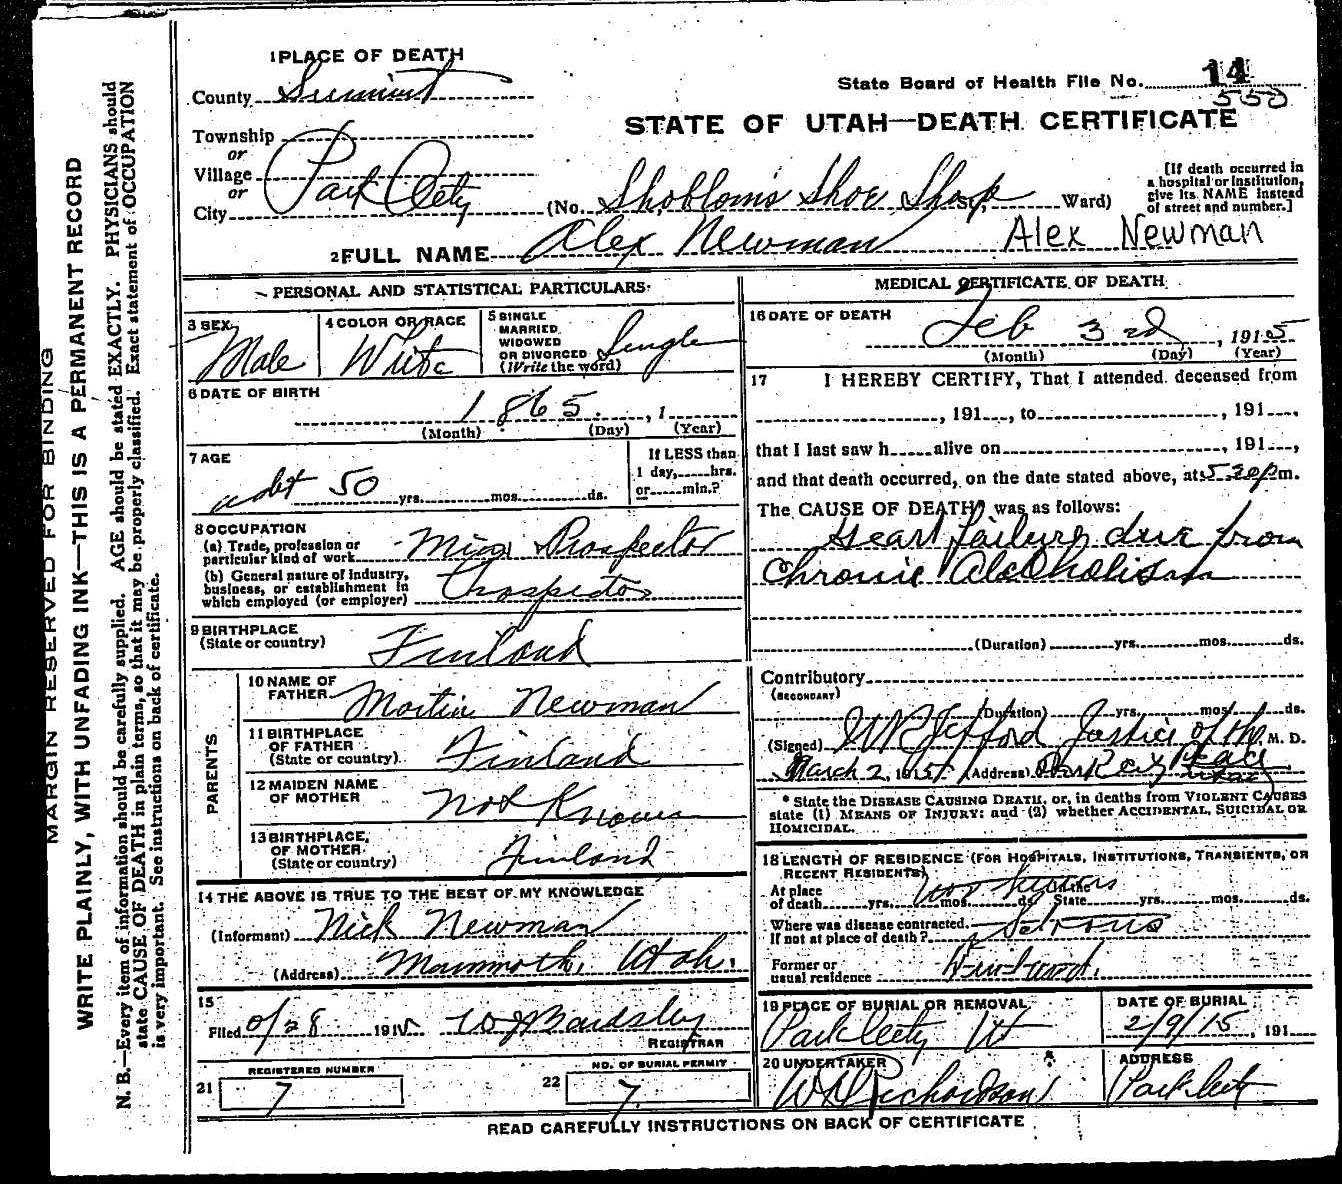 1 PLACE OF DEATH
County Summit
State Board of Health File No. 14
550
STATE OF UTAH—DEATH CERTIFICATE
Township
or
Village
or
City Park City
(No. Shobloms Shoe Shop St., Ward)
[If death occurred in a hospital or institution, give its NAME instead of street and number.]
2 FULL NAME Alex Newman Alex Newman
PERSONAL AND STATISTICAL PARTICULARS
3 SEX Male
4 COLOR OR RACE White
5 SINGLE MARRIED WIDOWED OR DIVORCED (Write the word) Single
6 DATE OF BIRTH
1865, 1
(Month) (Day) (Year)
7 AGE
abt 50 yrs. mos. ds.
If LESS than 1 day, hrs. or min.?
8 OCCUPATION
(a) Trade, profession or particular kind of work Prospector
(b) General nature of industry, business, or establishment in which employed (or employer) Prospector
9 BIRTHPLACE (State or country) Finland
PARENTS
10 NAME OF FATHER Martin Newman
11 BIRTHPLACE OF FATHER (State or country) Finland
12 MAIDEN NAME OF MOTHER Not Known
13 BIRTHPLACE OF MOTHER (State or country) Finland
14 THE ABOVE IS TRUE TO THE BEST OF MY KNOWLEDGE
(Informant) Nick Newman
(Address) Mammoth, Utah.
15
Filed 2/28 191 Bardsley
REGISTRAR
21 REGISTERED NUMBER 7
22 NO. OF BURIAL PERMIT 7
MEDICAL CERTIFICATE OF DEATH
16 DATE OF DEATH
Feb 3rd, 1915
(Month) (Day) (Year)
17 I HEREBY CERTIFY, That I attended deceased from
, 191 , to , 191 ,
that I last saw h alive on , 191 ,
and that death occurred, on the date stated above, at 5 30 p m.
The CAUSE OF DEATH was as follows:
Heart failure due from
Chronic Alcoholism
(Duration) yrs. mos. ds.
Contributory
(SECONDARY)
(Duration) yrs. mos. ds.
(Signed) Jefford Justice of the Peace M. D.
March 2, 1915 (Address) Park City Utah
* State the DISEASE CAUSING DEATH, or, in deaths from VIOLENT CAUSES state (1) MEANS OF INJURY; and (2) whether ACCIDENTAL, SUICIDAL OR HOMICIDAL.
18 LENGTH OF RESIDENCE (FOR HOSPITALS, INSTITUTIONS, TRANSIENTS, OR RECENT RESIDENTS)
At place of death yrs. mos. ds. State yrs. mos. ds.
Where was disease contracted, If not at place of death?
Former or usual residence
19 PLACE OF BURIAL OR REMOVAL Park City Ut
DATE OF BURIAL 2/9/15, 191
20 UNDERTAKER Richardson
ADDRESS Park City
READ CAREFULLY INSTRUCTIONS ON BACK OF CERTIFICATE
MARGIN RESERVED FOR BINDING
WRITE PLAINLY, WITH UNFADING INK—THIS IS A PERMANENT RECORD
N. B.—Every item of information should be carefully supplied. AGE should be stated EXACTLY. PHYSICIANS should
state CAUSE OF DEATH in plain terms, so that it may be properly classified. Exact statement of OCCUPATION
is very important. See instructions on back of certificate.